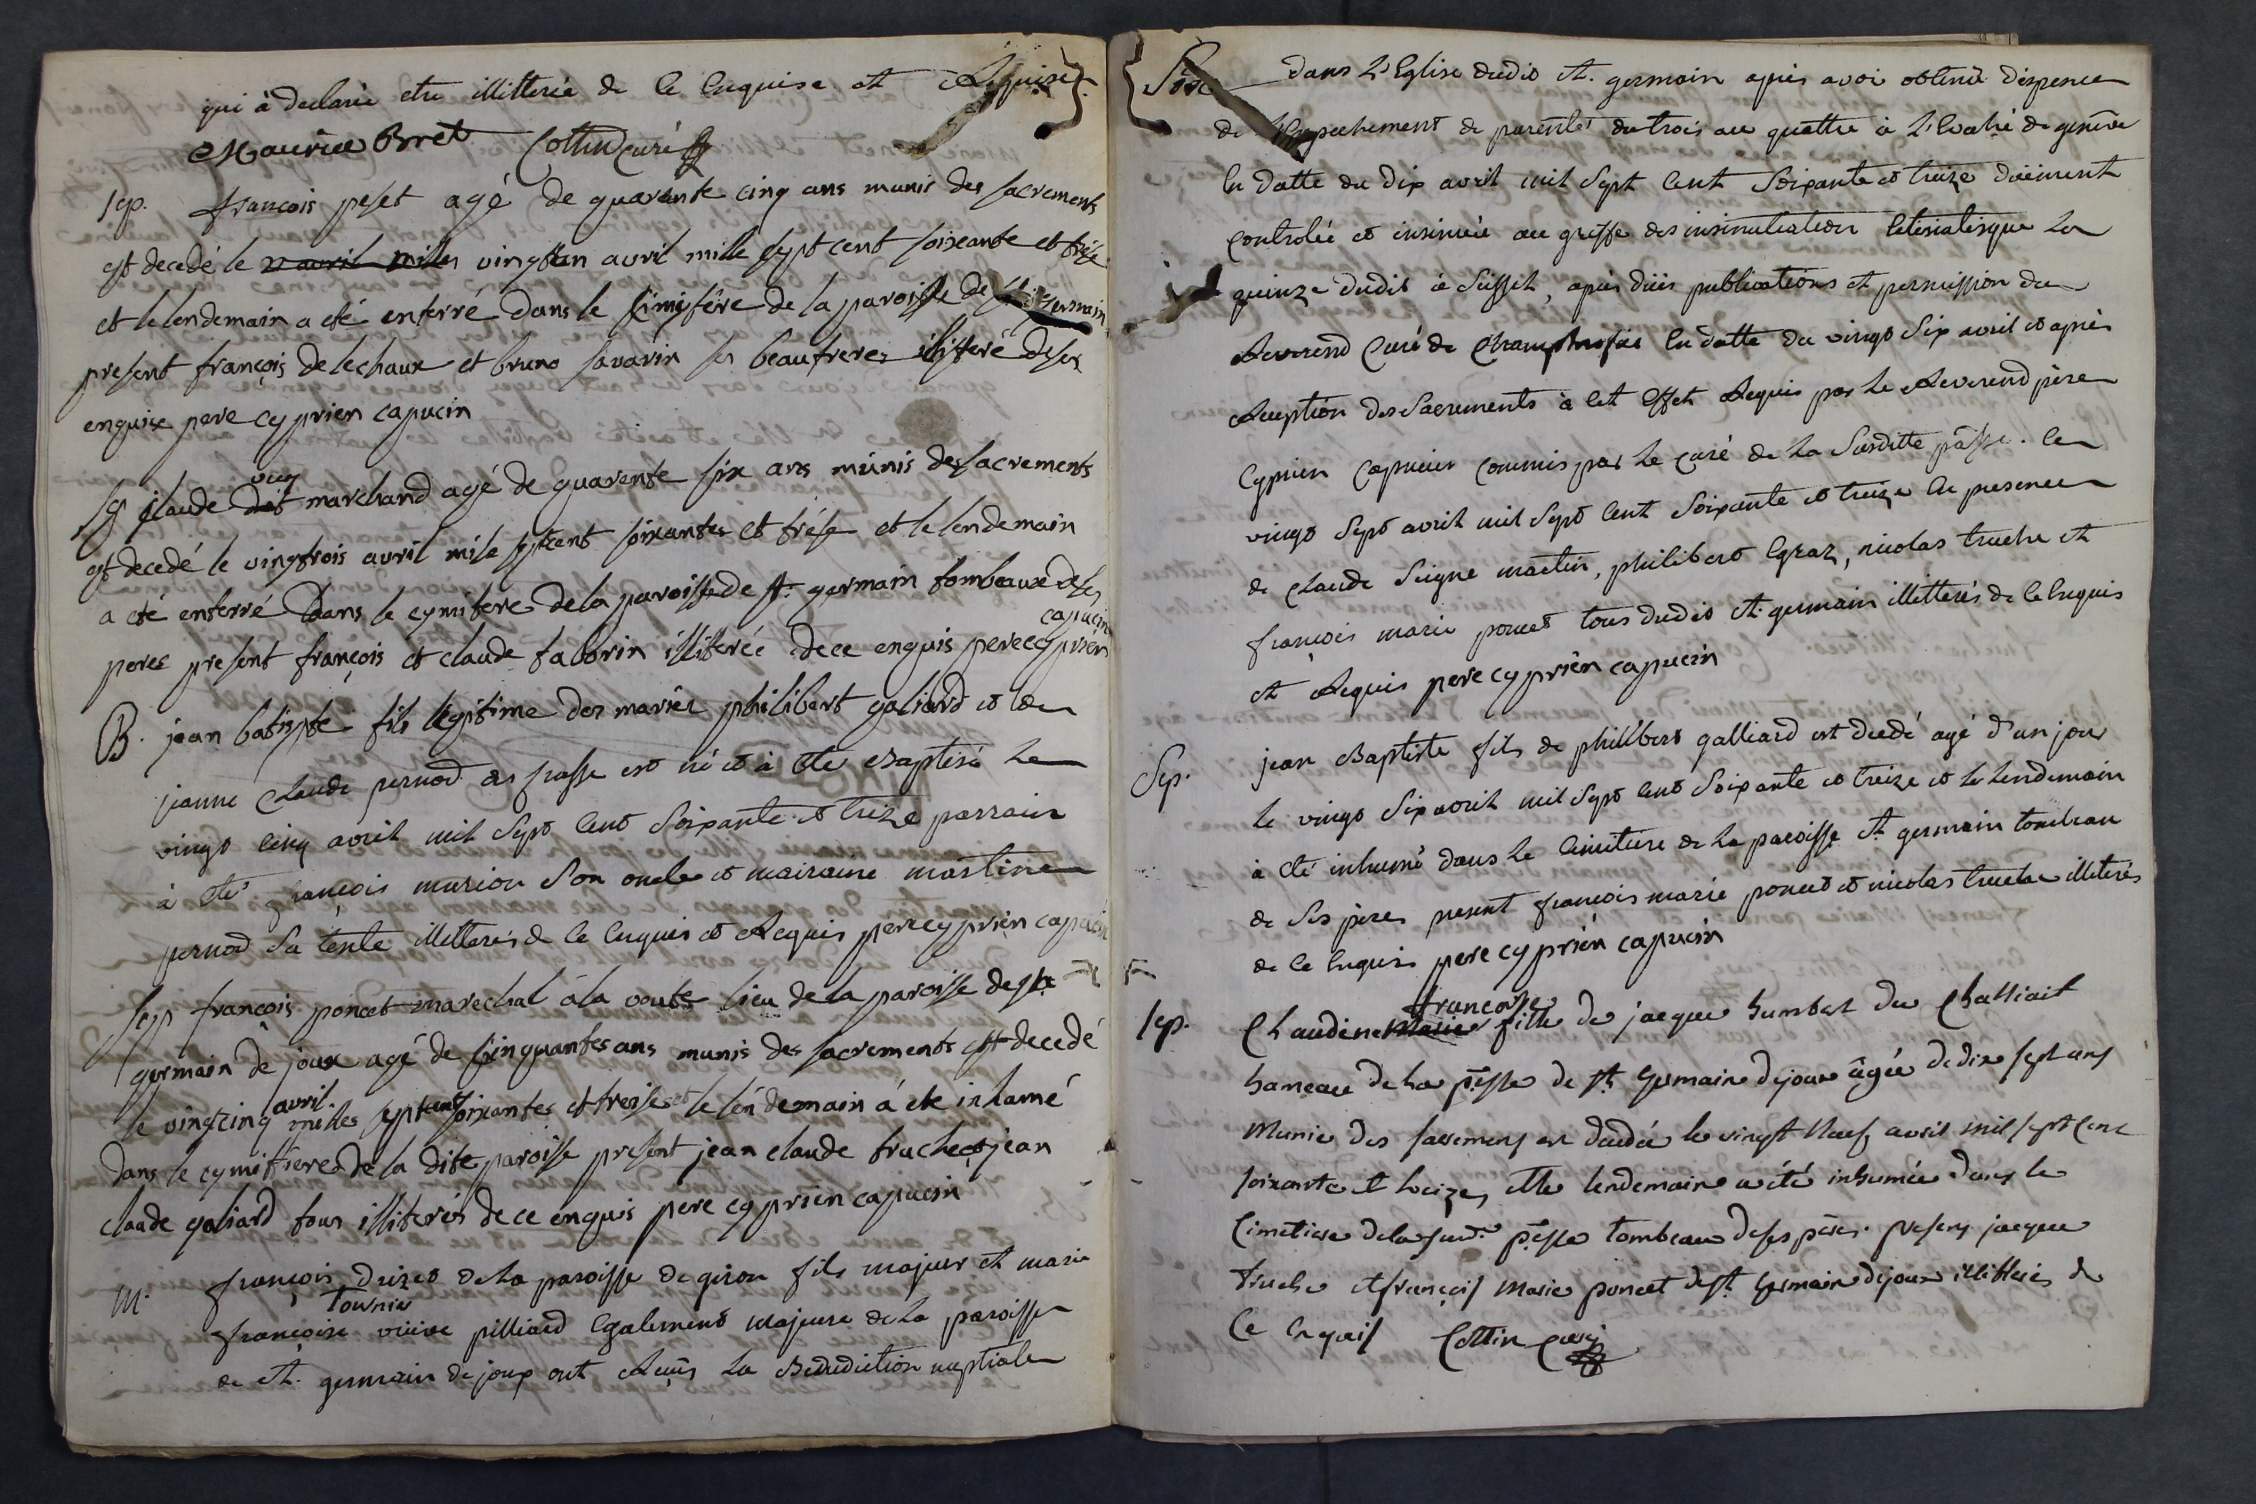 qui à declarée etre illitterée de ce enquise et Requise
Maurice Bret Cottin curé
sep. françois peset agé de quarente cinq ans munis des sacrements
est decedé le vingtun avril mille sept cent soixante et trése
et le lendemain a eté enterré dans le simitére de la paroisse de st germain
present françois delechaux et bruno savarin ses beaufreres illiteré deses
enquise pere cyprien capucin
Sep Claude marchand agé de quarente six ans munis des sacrements
est decedé le vingtrois avril mile sptcent soixantes et trése et le lendemain
a eté enterré dans le cymitere de la paroisse de st. germain tombeaux de ses
peres present françois et claude taborin illiterée dece enquis pere cyprien
capucin
B. jean batispte fils legitime des mariés philibert galiard et de
jeanne Claude pernod est né et à été Baptisé le
vingt cinq avril mil sept cent soixante et treize parrain
à été françois murion son oncle et mairaine martine
pernod sa tente illetterés de ce enquis et Requis pere cyprien capucin
sep françois poncet marechal à la voute lieu de la paroisse de st
germain de joux agé de sinquantes ans munis des sacrements est decedé
le vingtcinq avril milles septcent soixantes et treise et le lendemain à eté inhumé
dans le cymitiere de la dite paroisse present jean claude truchet et jean
claude galiard tous illiterés de ce enquis pere cyprien capucin
M. françois duizet de la paroisse de giron fils majeur et marie
françoise Tournier veuve pilliard Egalement majeure de la paroisse
de st. germain de joux ont Reçus la Benediction nuptiale
dans L'Eglise dudit st. germain apres avoir obtenu dispence
de L'Empechement de parenté du trois au quattre à L'Evahé de genêve
En datte du dix avril mil sept cent soixante et treize dûëment
controlée et insinuée au greffe des insinuation le
quinze dudit à seissel, apres dües publications et permission du
Reverend Curé de En datte du vingt six avril et apres
Reception des sacrements à cet Effet Requis par le Reverend père
Cyprien capucin commis par le curé de la susditte pâsse. le
vingt sept avril mil sept cent soixante et treize En presence
de claude seigne martin, philibert Egraz, nicolas truche et
françois marie poncet tous dudit st. germain illetterés de ce Enquis
et Requis pere cyprien capucin
Sep. jean Baptiste fils de philibert galliard est decedé agé d'un jour
le vingt six avril mil sept cent soixante et treize et le lendemain
à eté inhumé dans le cimitiere de la paroisse st. germain tombeau
de ses pères present françois marie poncet et nicolas truche illiterés
de ce Enquis pere cyprien capucin
sep. Claudine Marie françoise fille de jacque humbert du Challiait
hameau de la p̄sse de st. Germain dejoux âgée de dix sept ans
Munie des sacremens est decedée le vingt Neuf avril mil sept cent
soixante et treize, et le lendemain a été inhumée dans le
Cimetiere de la sud.e p̄sse tombeau de ses péres. presens jacque
truche et françois Marie poncet de st. Germain dejoux illitterés de
Ce Enquis Cottin Curé